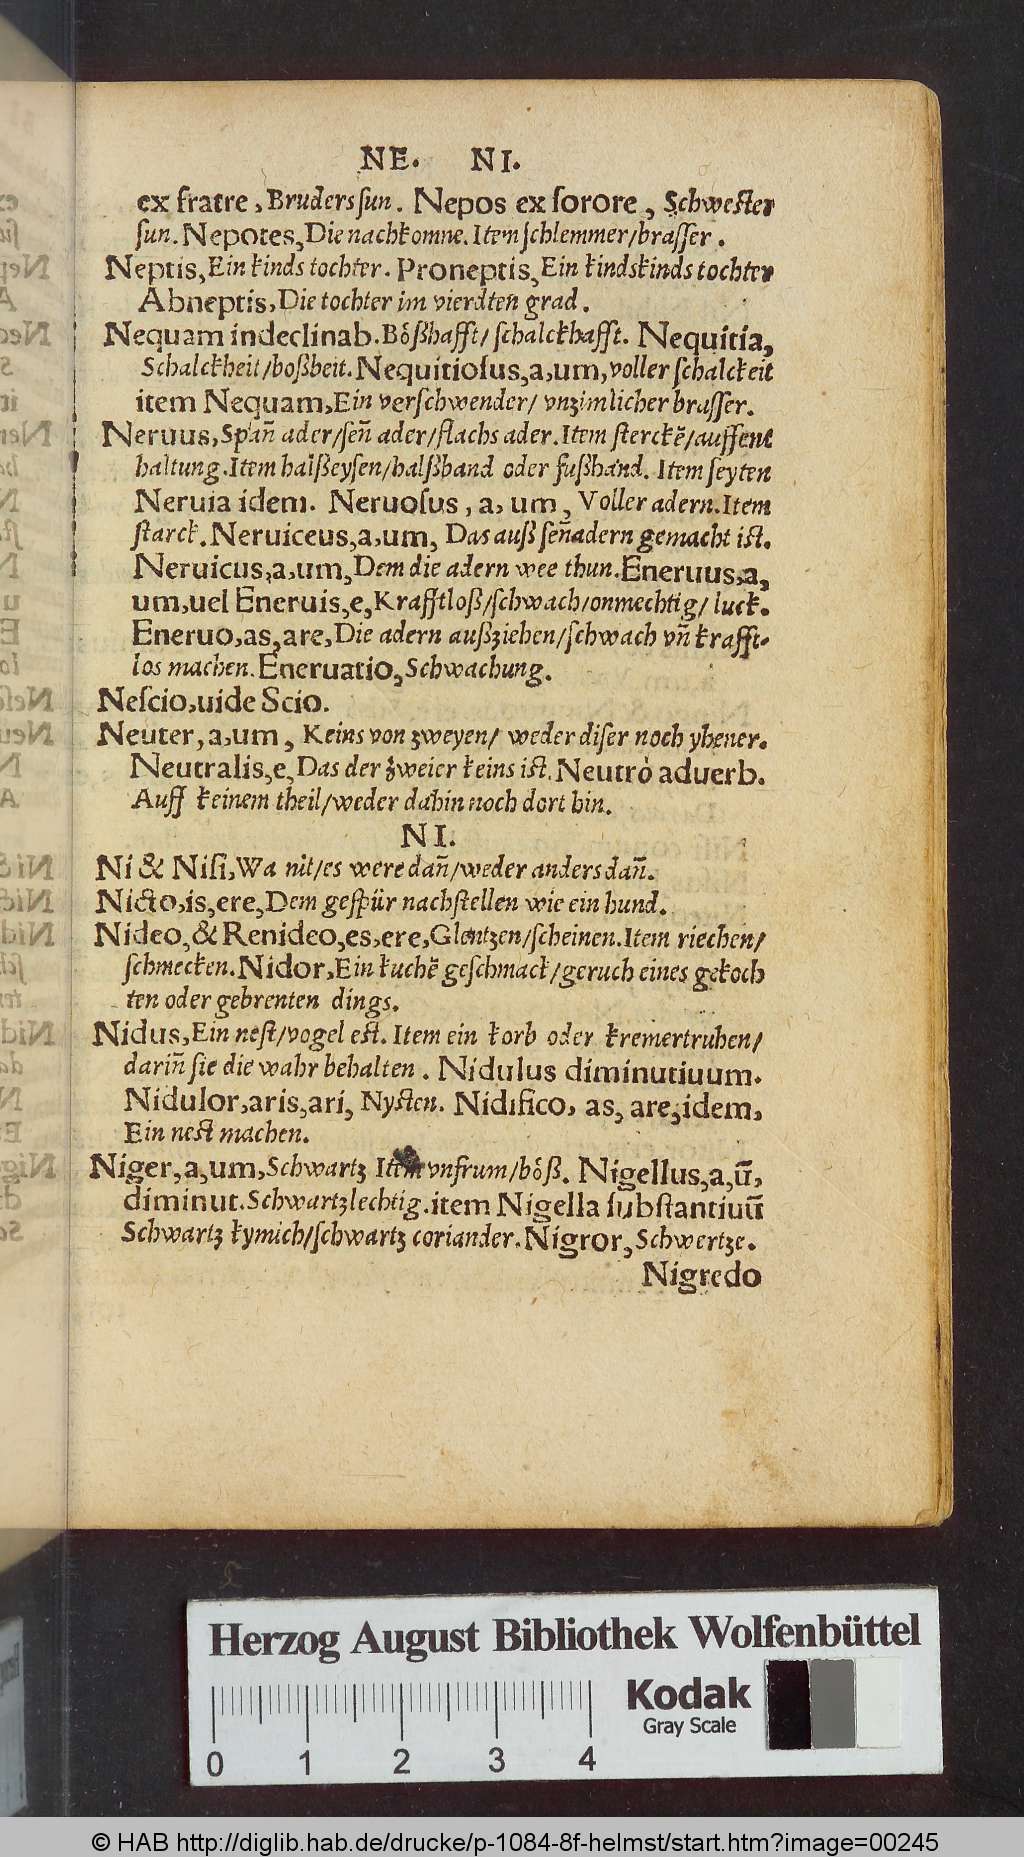 NE. NI.
ex fratre, Bruders sun. Nepos ex sorore, Schwester
sun. Nepotes, Die nachkomne. Item schlemmer/brasser.
Neptis, Ein kinds tochter. Proneptis, Ein kindskinds tochter
Abneptis, Die tochter im vierdten grad.
Nequam indeclinab. Bößhafft/ schalckhafft. Nequitia,
Schalckheit/boßheit. Nequitiosus,a,um, voller schalckeit
item Nequam, Ein verschwender/ vnzimlicher brasser.
Neruus, Spañ ader/señ ader/flachs ader. Item sterckẽ/auffent
haltung. Item halßeysen/halßband oder fußband. Item seyten
Neruia idem. Neruosus, a, um, Voller adern. Item
starck. Neruiceus,a,um, Das auß señadern gemacht ist.
Neruicus,a,um, Dem die adern wee thun. Eneruus,a,
um,uel Eneruis,e, Krafftloß/schwach/onmechtig/ luck.
Eneruo,as,are, Die adern außziehen/schwach vñ krafft-
los machen. Eneruatio, Schwachung.
Nescio,uide Scio.
Neuter,a,um, Keins von zweyen/ weder diser noch yhener.
Neutralis,e, Das der zweier keins ist. Neutrò aduerb.
Auff keinem theil/weder dahin noch dort hin.
NI.
Ni & Nisi, Wa nit/es were dañ/weder anders dañ.
Nicto,is,ere, Dem gespür nachstellen wie ein hund.
Nideo,& Renideo,es,ere, Glentzen/scheinen. Item riechen/
schmecken. Nidor, Ein kuchẽ geschmack/geruch eines gekoch
ten oder gebrenten dings.
Nidus, Ein nest/vogel est. Item ein korb oder kremertruhen/
dariñ sie die wahr behalten. Nidulus diminutiuum.
Nidulor,aris,ari, Nysten. Nidifico, as, are,idem,
Ein nest machen.
Niger,a,um, Schwartz Item vnfrum/böß. Nigellus,a,ũ,
diminut. Schwartzlechtig. item Nigella substantiuũ
Schwartz kymich/schwartz coriander. Nigror, Schwertze.
Nigredo
Herzog August Bibliothek Wolfenbüttel
Kodak
Gray Scale
0 1 2 3 4
© HAB http://diglib.hab.de/drucke/p-1084-8f-helmst/start.htm?image=00245